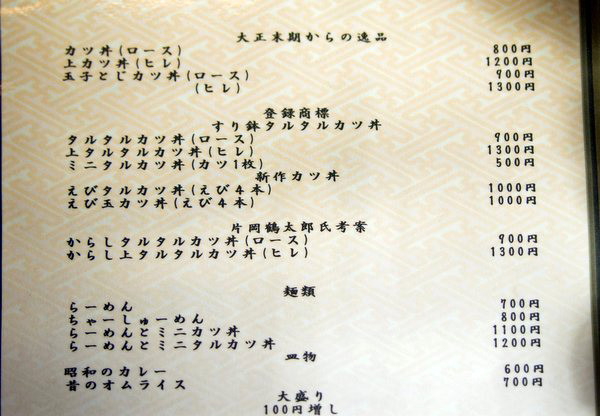 大正末期からの逸品
カツ丼(ロース) 800円
上カツ丼(ヒレ) 1200円
玉子とじカツ丼(ロース) 900円
(ヒレ) 1300円
登録商標
すり鉢タルタルカツ丼
タルタルカツ丼(ロース) 900円
上タルタルカツ丼(ヒレ) 1300円
ミニタルカツ丼(カツ1枚) 500円
新作カツ丼
えびタルカツ丼(えび4本) 1000円
えび玉カツ丼(えび4本) 1000円
片岡鶴太郎氏考案
からしタルタルカツ丼(ロース) 900円
からし上タルタルカツ丼(ヒレ) 1300円
麺類
らーめん 700円
ちゃーしゅーめん 800円
らーめんとミニカツ丼 1100円
らーめんとミニタルカツ丼 1200円
皿物
昭和のカレー 600円
昔のオムライス 700円
大盛り
100円増し